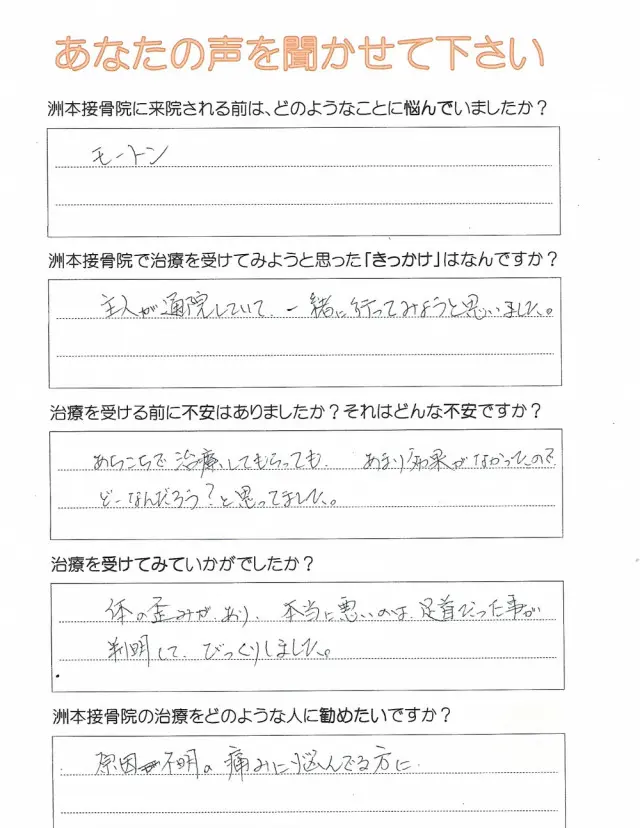 あなたの声を聞かせて下さい
洲本接骨院に来院される前は、どのようなことに悩んでいましたか？
モートン
洲本接骨院で治療を受けてみようと思った「きっかけ」はなんですか？
主人が通院していて、一緒に行ってみようと思いました。
治療を受ける前に不安はありましたか？それはどんな不安ですか？
あちこちで治療してもらっても、あまり効果がなかったので
どーなんだろう？と思ってました。
治療を受けてみていかがでしたか？
体の歪みがあり、本当に悪いのは、足首だった事が
判明して、びっくりしました。
洲本接骨院の治療をどのような人に勧めたいですか？
原因不明の痛みに悩んでる方に